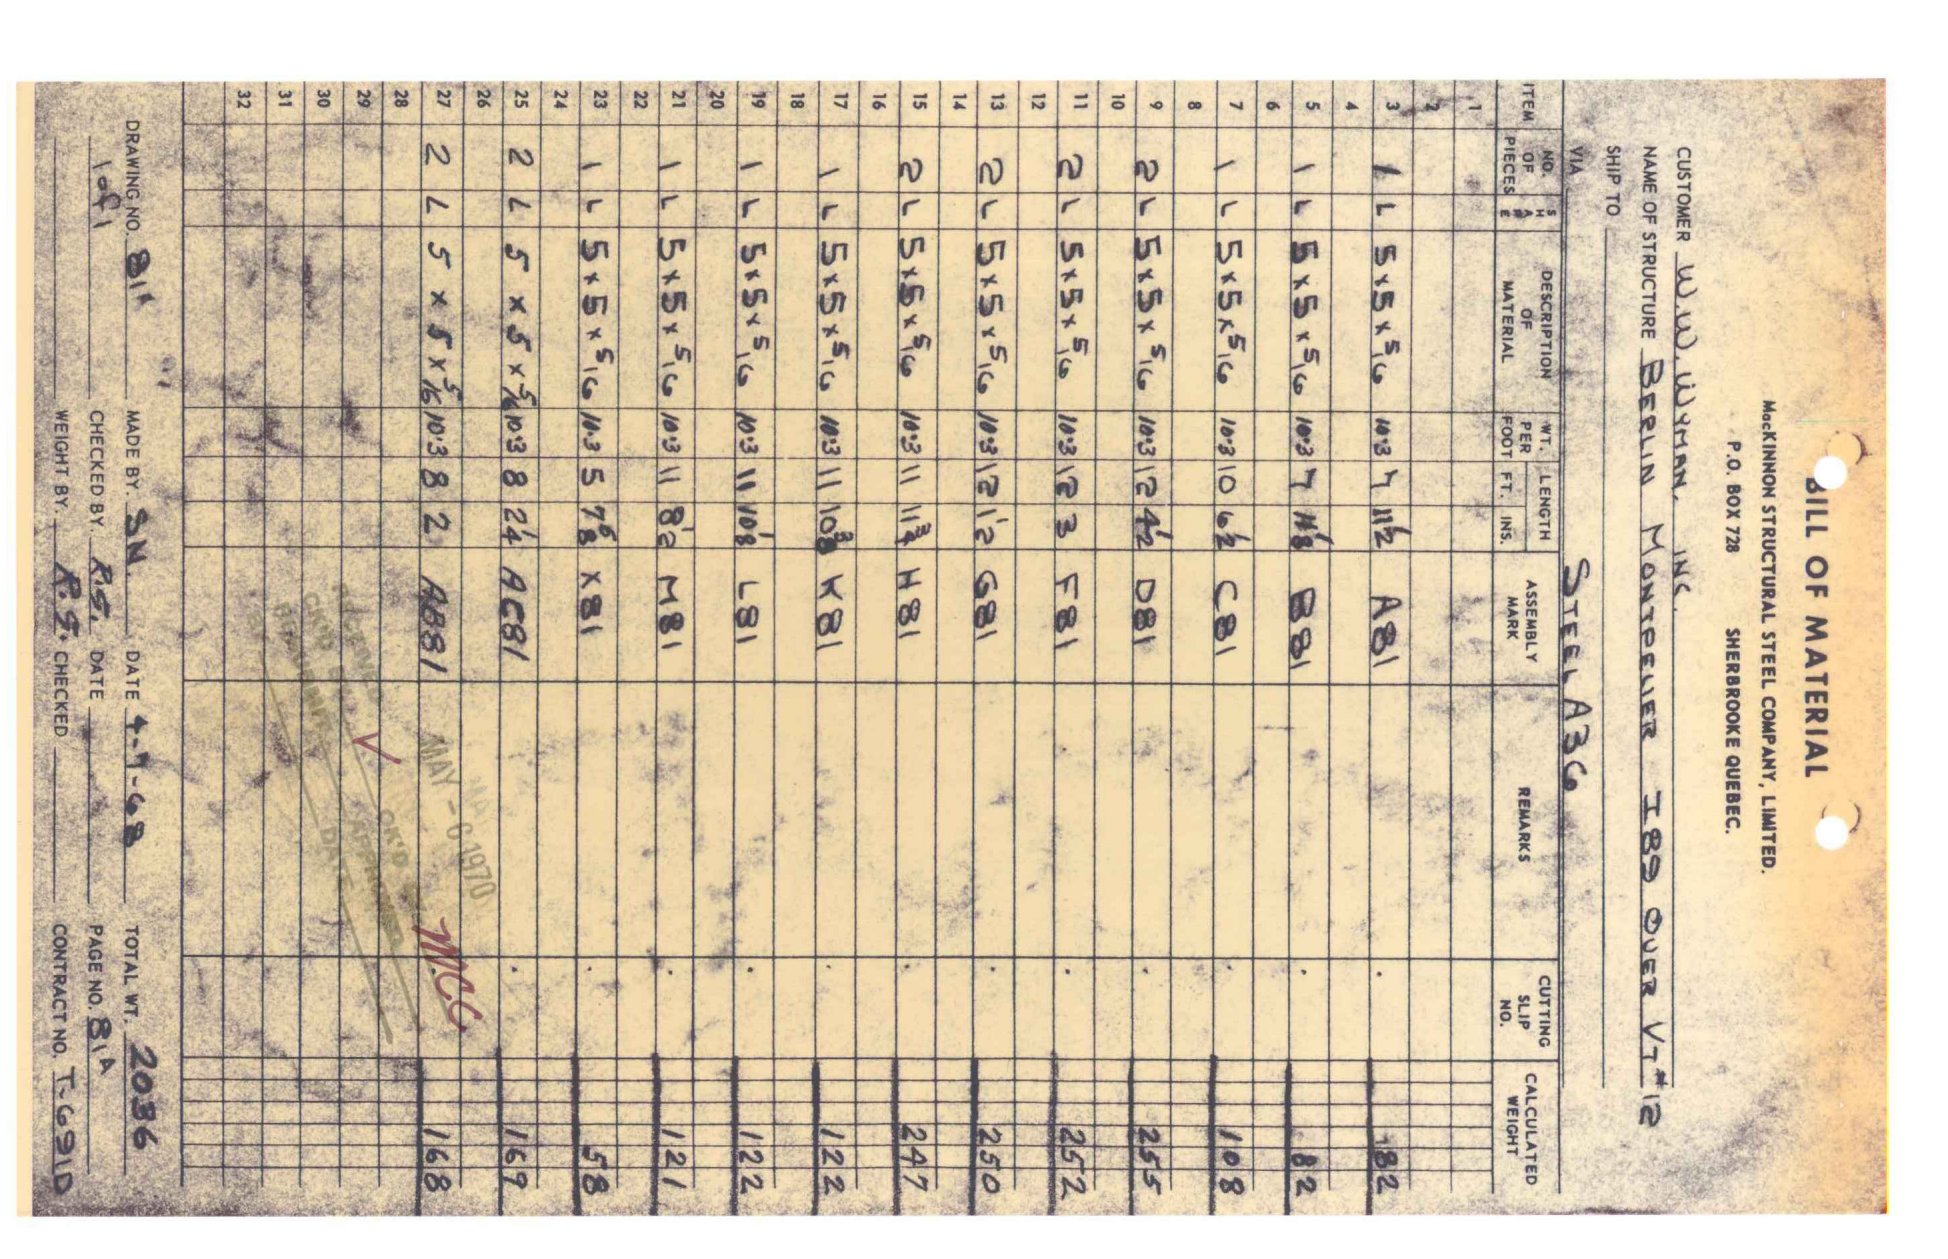 BILL OF MATERIAL
MacKINNON STRUCTURAL STEEL COMPANY, LIMITED.
P.O. BOX 728 SHERBROOKE QUEBEC.
CUSTOMER W.W. WYMAN, INC.
NAME OF STRUCTURE BERLIN MONTPELIER I89 OVER VT #12
SHIP TO
VIA STEEL A36
ITEM NO. OF PIECES SHAPE DESCRIPTION OF MATERIAL WT. PER FOOT LENGTH FT. INS. ASSEMBLY MARK REMARKS CUTTING SLIP NO. CALCULATED WEIGHT
1
2
3 1 L 5 x 5 x 5/16 10.3 7 11 1/2 A81 82
4
5 1 L 5 x 5 x 5/16 10.3 7 11 1/8 B81 82
6
7 1 L 5 x 5 x 5/16 10.3 10 6 1/2 C81 108
8
9 2 L 5 x 5 x 5/16 10.3 12 4 1/2 D81 255
10
11 2 L 5 x 5 x 5/16 10.3 12 3 F81 252
12
13 2 L 5 x 5 x 5/16 10.3 12 1 1/2 G81 250
14
15 2 L 5 x 5 x 5/16 10.3 11 11 3/4 H81 247
16
17 1 L 5 x 5 x 5/16 10.3 11 10 3/8 K81 122
18
19 1 L 5 x 5 x 5/16 10.3 11 10 1/8 L81 122
20
21 1 L 5 x 5 x 5/16 10.3 11 8 1/2 M81 121
22
23 1 L 5 x 5 x 5/16 10.3 5 7 5/8 X81 58
24
25 2 L 5 x 5 x 5/16 10.3 8 2 1/4 AC81 169
26
27 2 L 5 x 5 x 5/16 10.3 8 2 AB81 168
28
29
30
31
32
MAY - 6 1970
MCC
DATE
DRAWING NO. 81A MADE BY. SN. DATE 4-7-68 TOTAL WT. 2036
1 of 1 CHECKED BY. R.S. DATE PAGE NO. 81A
WEIGHT BY. R.S. CHECKED CONTRACT NO. T-691D